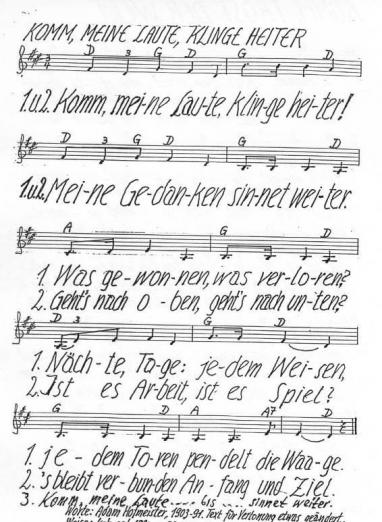 KOMM, MEINE LAUTE, KLINGE HEITER
D 3 G D G D
1.u.2. Komm, mei-ne Lau-te, klin-ge hei-ter!
D 3 G D G D
1.u.2. Mei-ne Ge-dan-ken sin-net wei-ter.
A G D
1. Was ge-won-nen, was ver-lo-ren?
2. Geht's nach o-ben, geht's nach un-ten?
D 3 G D
1. Näch-te, Ta-ge: je-dem Wei-sen,
2. Ist es Ar-beit, ist es Spiel?
G D A A7 D
1. je-dem To-ren pen-delt die Waa-ge.
2. 's bleibt ver-bun-den An-fang und Ziel.
3. Komm, meine Laute .... bis .... sinnet weiter.
Worte: Adam Hofmeister, 1903-91. Text für Vertonung etwas geändert.